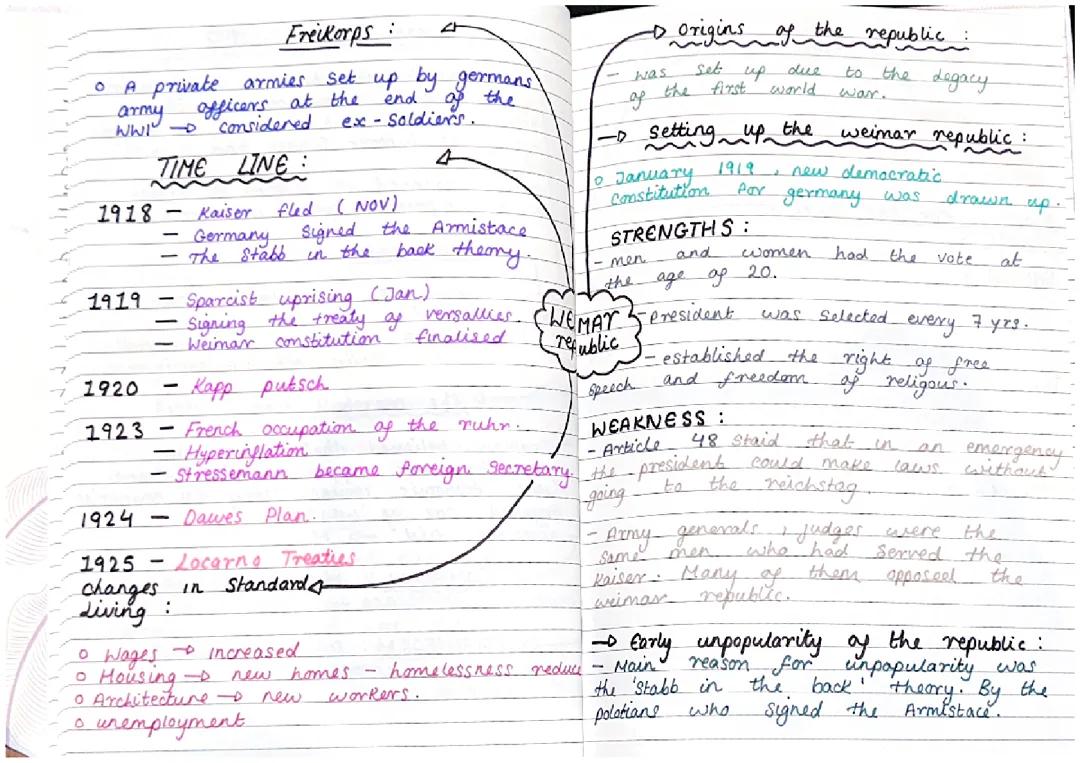 Freikorps :
o A private armies set up by germans
army officers at the end of the
WWI → considered ex-soldiers.
TIME LINE :
1918 – Kaiser fled (NOV)
– Germany signed the Armistace
– The Stabb in the back theory.
1919 – Sparcist uprising (Jan)
– Signing the treaty of versallies.
– Weimar constitution finalised
1920 – Kapp putsch
1923 – French occupation of the ruhr.
– Hyperinflation
– Stressemann became foreign Secretary.
1924 – Dawes Plan.
1925 – Locarno Treaties
changes in Standard
living :
o Wages → increased
o Housing → new homes – homelessness reduce
o Architecture → new workers.
o unemployment
WEIMAR
republic
→ Origins of the republic :
– was set up due to the legacy
of the first world war.
→ Setting up the weimar republic :
o January 1919, new democratic
constitution for germany was drawn up.
STRENGTHS :
– men and women had the vote at
the age of 20.
President was selected every 7 yrs.
– established the right of free
speech and freedom of religous.
WEAKNESS :
– Article 48 staid that in an emergency
the president could make laws without
going to the reichstag.
– Army generals, judges were the
same men who had served the
Kaiser. Many of them opposed the
weimar republic.
→ Early unpopularity of the republic :
– Main reason for unpapularity was
the 'Stabb in the back' theory. By the
polotians who signed the Armistace.